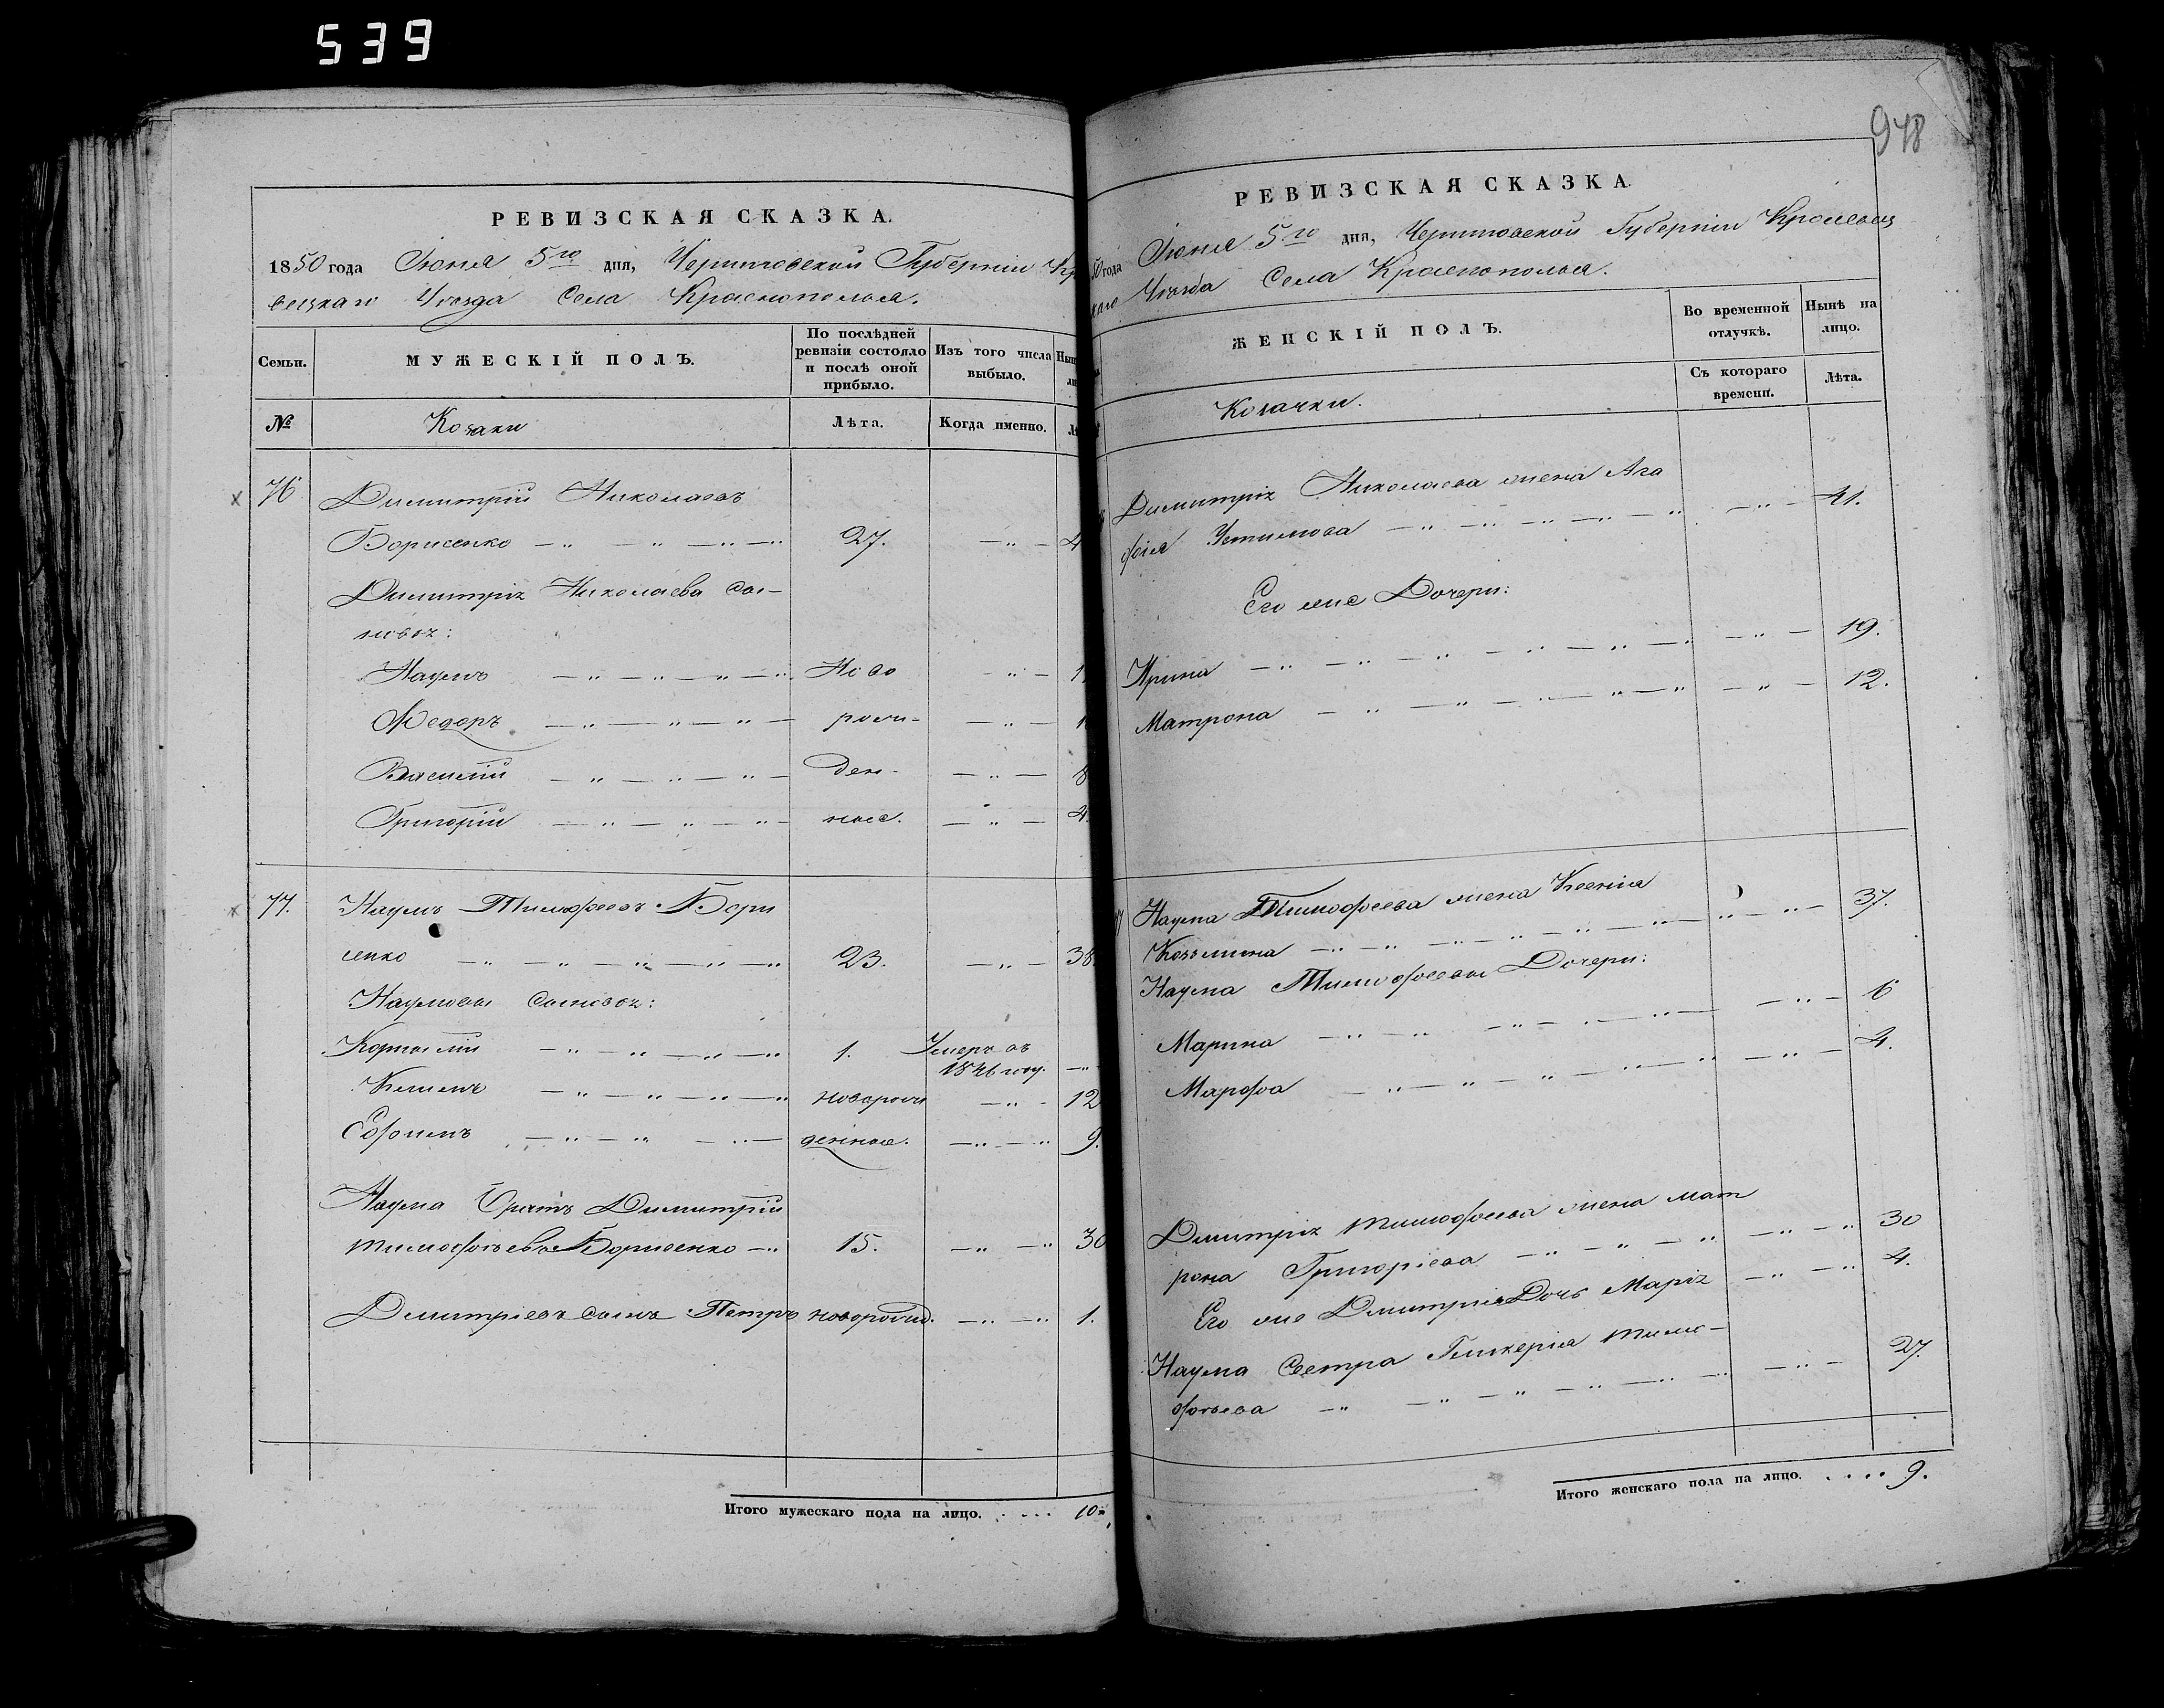 539
РЕВИЗСКАЯ СКАЗКА.
1850 года Июня 5го дня, Черниговской Губернии Кр
вецкаго Уезда Села Краснополья.
Семьи.
МУЖЕСКІЙ ПОЛЪ.
По послѣдней ревизіи состояло и послѣ оной прибыло.
Изъ того числа выбыло.
№
Козаки
Лѣта.
Когда именно.
76. Димитрій Николаевъ
Борисенко 27. 4
Димитрія Николаева сы-
новья:
Наумъ Ново 1
Федоръ рож- 1
Василій ден- 8
Григорій ные. 4.
77. Наумъ Тимофеевъ Бори
сенко 23. 38.
Наумовы сыновья:
Корнилій 1. Умеръ въ
1846 году.
Климъ новорож 12
Ефимъ денные. 9.
Наума братъ Димитрій
Тимофѣевъ Борисенко 15. 30
Димитріевъ сынъ Петръ новорожд. 1.
Итого мужескаго пола на лицо. . . . . 10
948
РЕВИЗСКАЯ СКАЗКА.
50 года Июня 5го дня, Черниговской Губерніи Кролевец
каго Уезда Села Краснополья.
ЖЕНСКІЙ ПОЛЪ.
Во временной отлучкѣ.
Нынѣ на лицо.
Козачки.
Съ котораго времени.
Лѣта.
Димитрія Николаева жена Ага
фія Устимова 41.
Его же Дочери:
Ирина 19.
Матрона 12.
Наума Тимофеева жена Ксенія
Козьмина 37.
Наума Тимофеева Дочери:
Марина 6
Марфа 4.
Дмитрія Тимофеева жена Мат
рона Григоріева 30
Его же Дмитрія Дочь Марія 4.
Наума Сестра Гликерія Тимо-
фѣева 27.
Итого женскаго пола на лицо. . . . . 9.